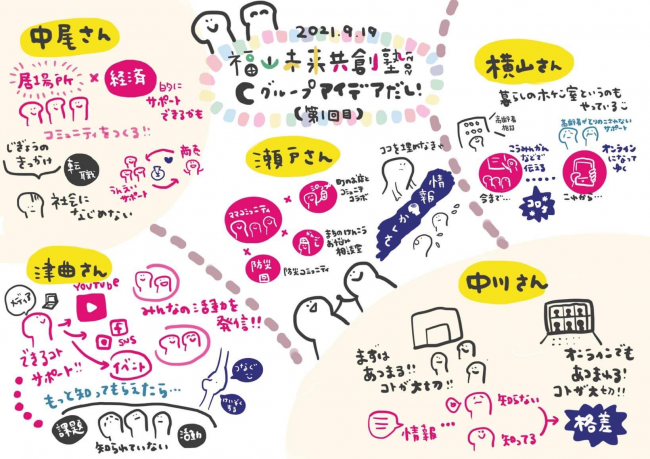 2021.9.19
福山未来共創塾2021
Cグループアイデアだし!
(第1回目)
中尾さん
居場所
×
経済
的に
サポート
できるかも
コミュニティをつくる!!
じぎょうの
きっかけ
転職
両者
うんえい
サポート
社会に
なじめない
瀬戸さん
ココを埋めなきゃ
情報
さくが
ママコミュニティ
×
町のお店と
コミュニティ
コラボ
×
まちのけんこう
お悩み
相談室
×
防災
防災コミュニティ
横山さん
暮らしのホケン室というのも
やっている
高齢者
相談
高齢者がとりのこされない
サポート
こうみんかん
などで
伝える
オンライン
になって
ゆく
今まで…
コロナ
これから…
津曲さん
メディア
YOUTUBE
SNS
イベント
みんなの活動を
発信!!
できるコト
サポート!!
もっと知ってもらえたら…
つなぐ
けいぞくする
課題
知られていない
活動
中川さん
まずは
あつまる!!
コトが大切!!
オンラインでも
あつまれる!
コトが大切!!
情報…
知らない
知ってる
格差